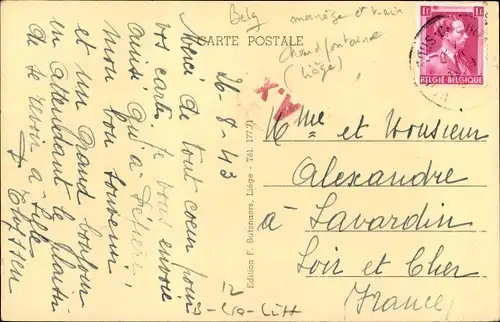 Belg
manège et
Chaudfontaine
(Liège)
CARTE POSTALE
1F 1F
BELGIE-BELGIQUE
A.X
26-8-43
Merci de tout coeur pour
vos cartes. Je vous envoie
ainsi qu'à
mon bon souvenir
et un grand bonjour
en attendant le plaisir
de te revoir à
Edition F. Butenaers, Liège - Tél. 177.71
Mme et Monsieur
Alexandre
à Lavardin
Loir et Cher
(France)
12